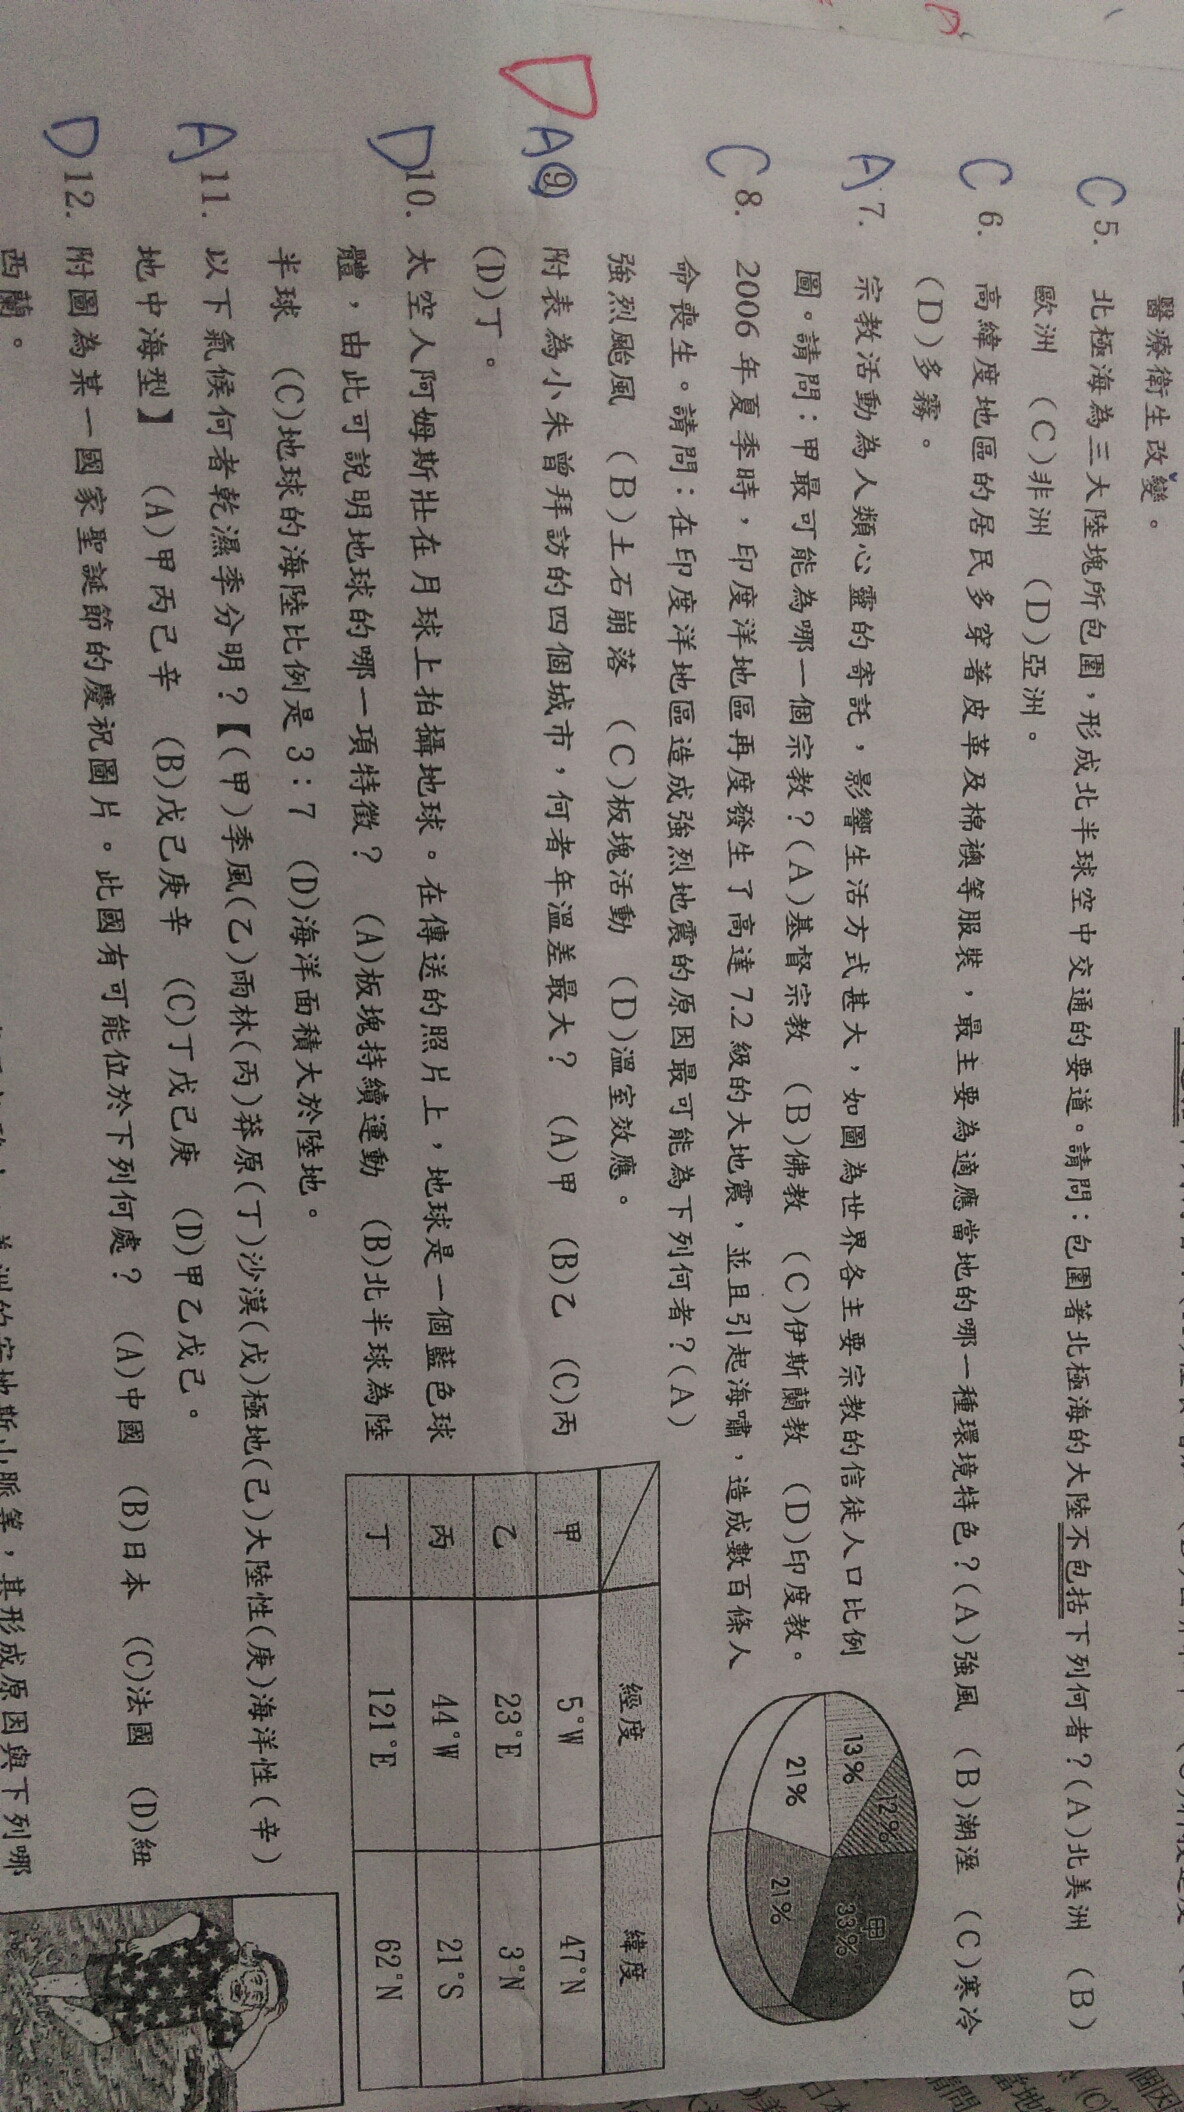 醫療衛生改變。
C 5. 北極海為三大陸塊所包圍，形成北半球空中交通的要道。請問：包圍著北極海的大陸不包括下列何者？(A)北美洲 (B)
歐洲 (C)非洲 (D)亞洲。
C 6. 高緯度地區的居民多穿著皮革及棉襖等服裝，最主要為適應當地的哪一種環境特色？(A)強風 (B)潮溼 (C)寒冷
(D)多霧。
A 7. 宗教活動為人類心靈的寄託，影響生活方式甚大，如圖為世界各主要宗教的信徒人口比例
圖。請問：甲最可能為哪一個宗教？(A)基督宗教 (B)佛教 (C)伊斯蘭教 (D)印度教。
甲
33%
12%
13%
21%
21%
C 8. 2006年夏季時，印度洋地區再度發生了高達7.2級的大地震，並且引起海嘯，造成數百條人
命喪生。請問：在印度洋地區造成強烈地震的原因最可能為下列何者？(A)
強烈颱風 (B)土石崩落 (C)板塊活動 (D)溫室效應。
D A 9. 附表為小朱曾拜訪的四個城市，何者年溫差最大？ (A)甲 (B)乙 (C)丙
(D)丁。
經度 緯度
甲 5°W 47°N
乙 23°E 3°N
丙 44°W 21°S
丁 121°E 62°N
D 10. 太空人阿姆斯壯在月球上拍攝地球。在傳送的照片上，地球是一個藍色球
體，由此可說明地球的哪一項特徵？ (A)板塊持續運動 (B)北半球為陸
半球 (C)地球的海陸比例是3：7 (D)海洋面積大於陸地。
A 11. 以下氣候何者乾濕季分明？【(甲)季風(乙)雨林(丙)莽原(丁)沙漠(戊)極地(己)大陸性(庚)海洋性(辛)
地中海型】 (A)甲丙己辛 (B)戊己庚辛 (C)丁戊己庚 (D)甲乙戊己。
D 12. 附圖為某一國家聖誕節的慶祝圖片。此國有可能位於下列何處？ (A)中國 (B)日本 (C)法國 (D)紐
西蘭。
美洲的安地斯山脈等，其形成原因與下列哪